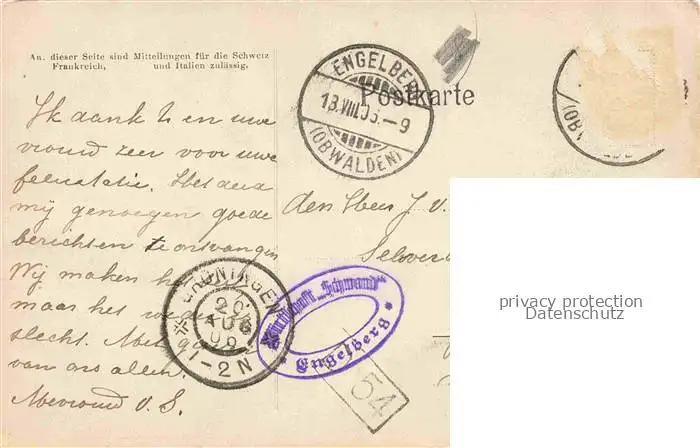 An dieser Seite sind Mitteilungen für die Schweiz
Frankreich, und Italien zulässig.
Postkarte
ENGELBERG
18.VIII.09.-9
(OBWALDEN)
Ik dank U en uwe
vrouw zeer voor uwe
felicitatie. Het deed
mij genoegen goede
berichten te ontvangen
Wij maken het
maar het weer
slecht. Met
van ons allen
V. S.
den Heer J. v.
GRONINGEN
20
AUG
09
1-2 N
Wirtschaft „Schwand"
Engelberg
54
privacy protection
Datenschutz